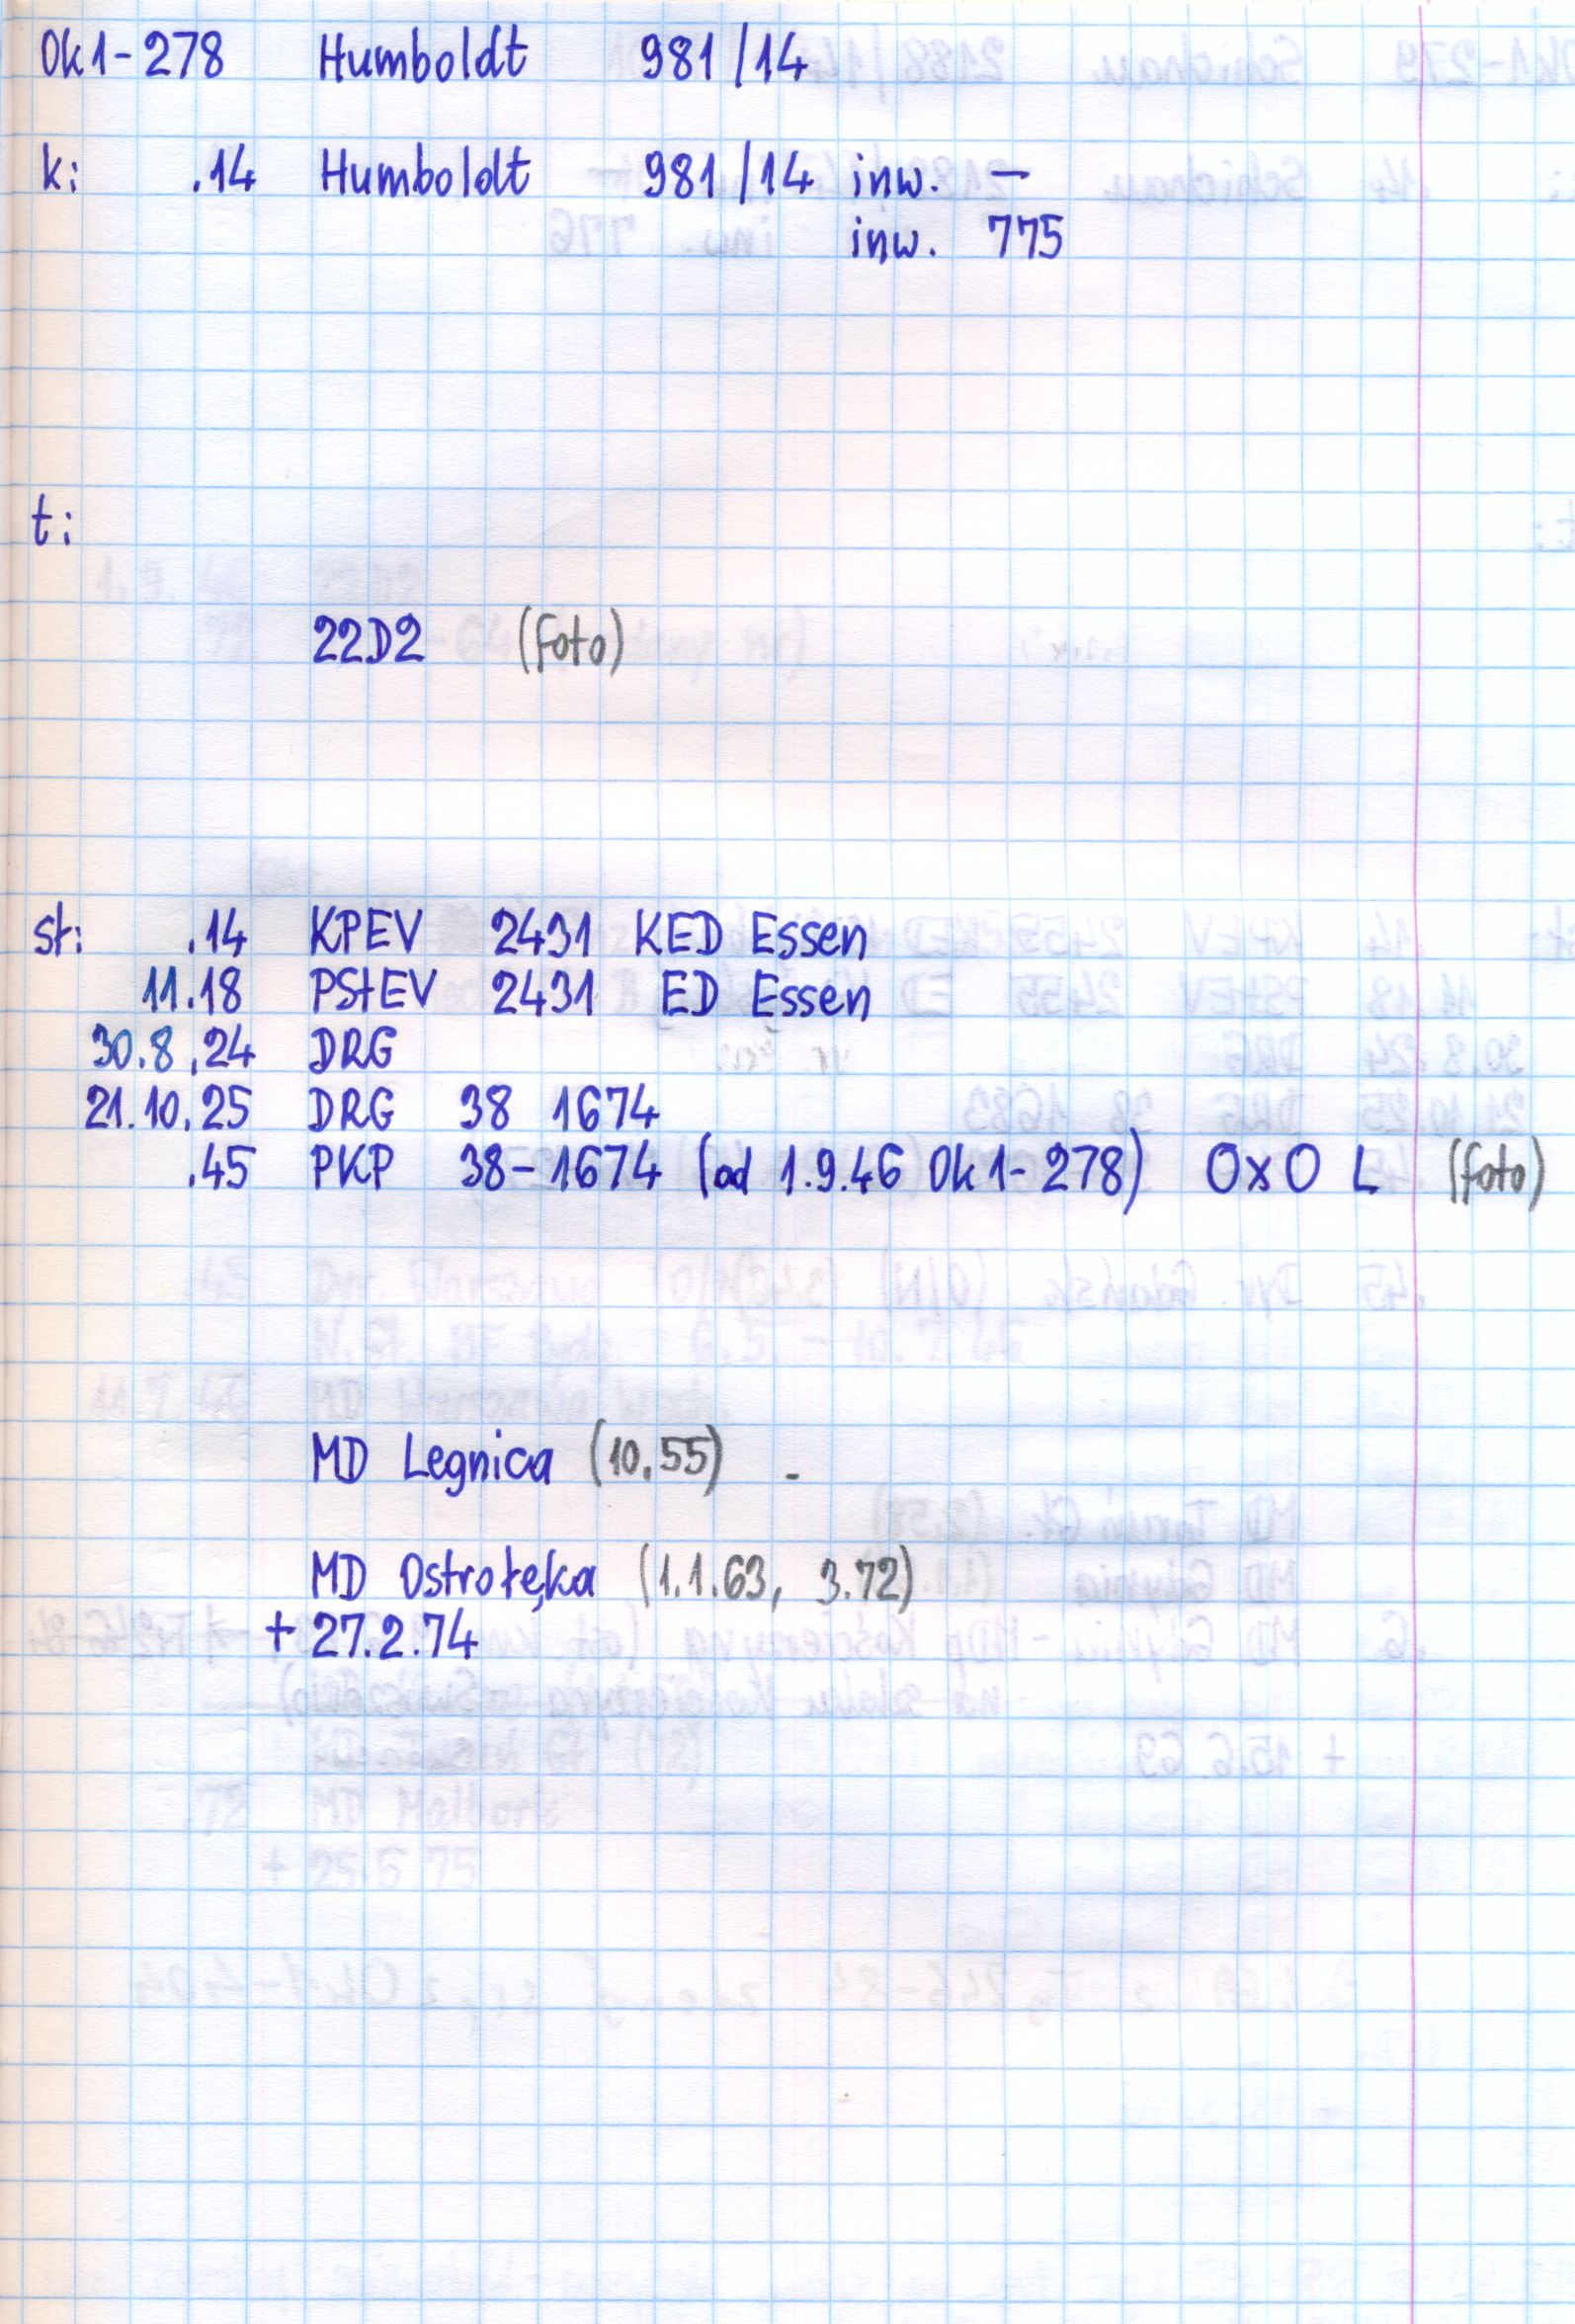 Ok1-278 Humboldt 981/14
k: .14 Humboldt 981/14 inw. —
inw. 775
t:
22D2 (foto)
st: .14 KPEV 2431 KED Essen
11.18 PStEV 2431 ED Essen
30.8.24 DRG
21.10.25 DRG 38 1674
.45 PKP 38-1674 (od 1.9.46 Ok1-278) OxO L (foto)
MD Legnica (10.55) -
MD Ostrołęka (1.1.63, 3.72)
+ 27.2.74